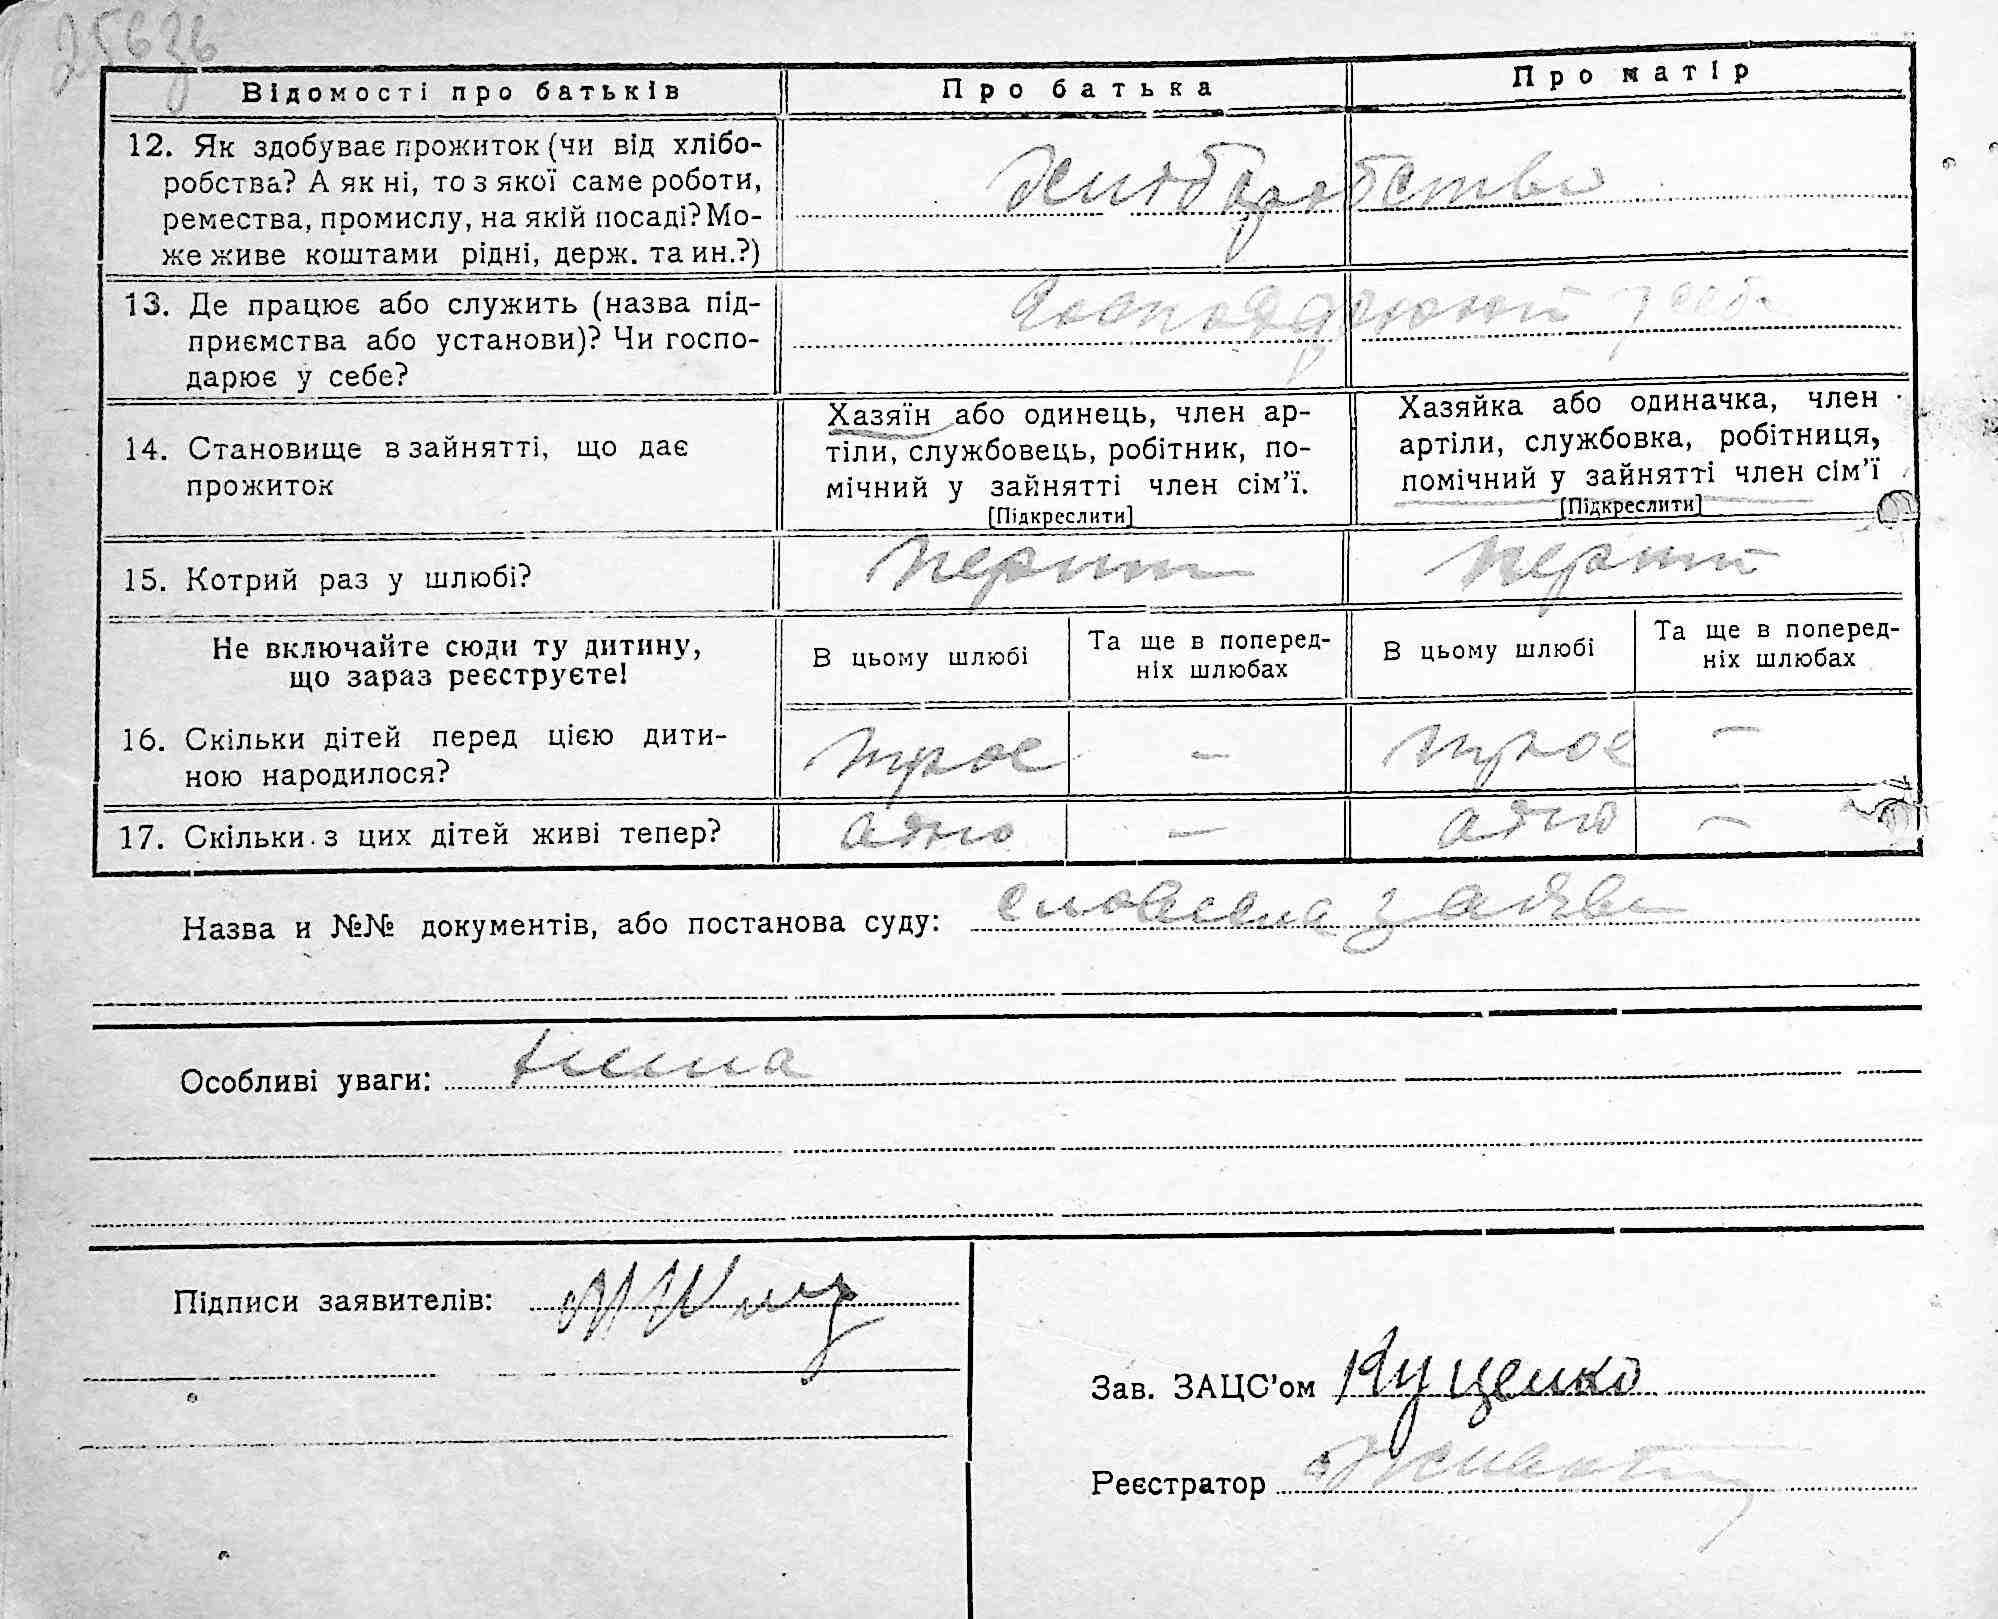 25636
Відомості про батьків
Про батька
Про матір
12. Як здобуває прожиток (чи від хлібо-
робства? А як ні, то з якої саме роботи,
ремества, промислу, на якій посаді? Мо-
же живе коштами рідні, держ. та ин.?)
хліборобство
13. Де працює або служить (назва під-
приємства або установи)? Чи госпо-
дарює у себе?
господарюють у себе
14. Становище в зайнятті, що дає
прожиток
Хазяїн або одинець, член ар-
тіли, службовець, робітник, по-
мічний у зайнятті член сім'ї.
[Підкреслити]
Хазяйка або одиначка, член
артіли, службовка, робітниця,
помічний у зайнятті член сім'ї
[Підкреслити]
15. Котрий раз у шлюбі?
перший
перший
Не включайте сюди ту дитину,
що зараз реєструєте!
В цьому шлюбі
Та ще в поперед-
ніх шлюбах
В цьому шлюбі
Та ще в поперед-
ніх шлюбах
16. Скільки дітей перед цією дити-
ною народилося?
трое
—
трое
—
17. Скільки з цих дітей живі тепер?
адно
—
адно
—
Назва и №№ документів, або постанова суду: словесна заява
Особливі уваги: нема
Підписи заявителів:
Зав. ЗАЦС'ом Куценко
Реєстратор